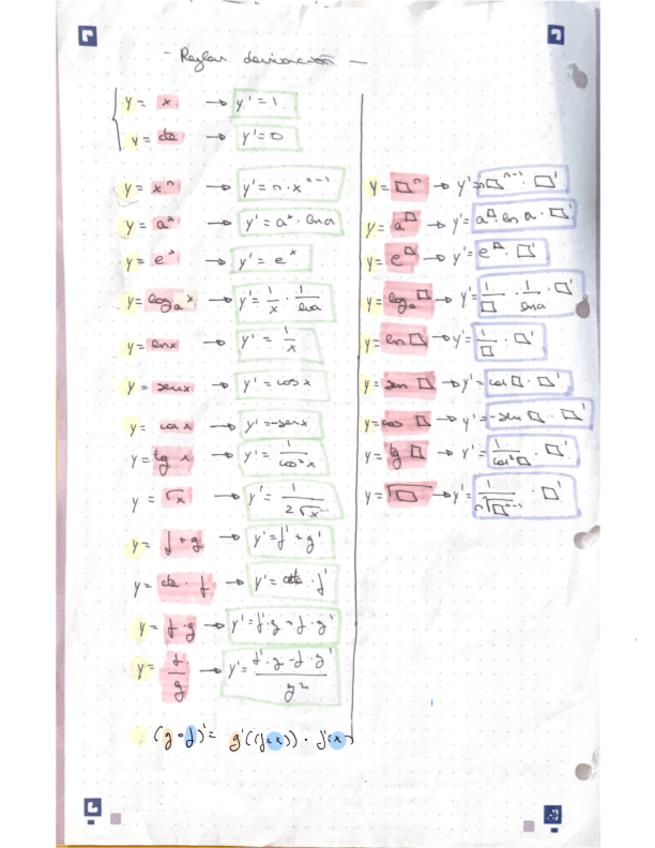 - Reglas derivación -
y = x → y' = 1
y = cte → y' = 0
y = xⁿ → y' = n · xⁿ⁻¹
y = aˣ → y' = aˣ · ln a
y = eˣ → y' = eˣ
y = logₐ x → y' = 1/x · 1/lna
y = lnx → y' = 1/x
y = senx → y' = cos x
y = cos x → y' = -senx
y = tg x → y' = 1/cos² x
y = √x → y' = 1/2√x
y = f + g → y' = f' + g'
y = cte · f → y' = cte · f'
y = f · g → y' = f' · g + f · g'
y = f/g → y' = f' · g - f · g'/g²
(g ∘ f)' = g'((f(x)) · f'(x)
y = □ⁿ → y' = n□ⁿ⁻¹ · □'
y = a^□ → y' = a^□ · ln a · □'
y = e^□ → y' = e^□ · □'
y = logₐ □ → y' = 1/□ · 1/lna · □'
y = ln □ → y' = 1/□ · □'
y = sen □ → y' = cos □ · □'
y = cos □ → y' = -sen □ · □'
y = tg □ → y' = 1/cos² □ · □'
y = √□ → y' = 1/n√□ⁿ⁻¹ · □'